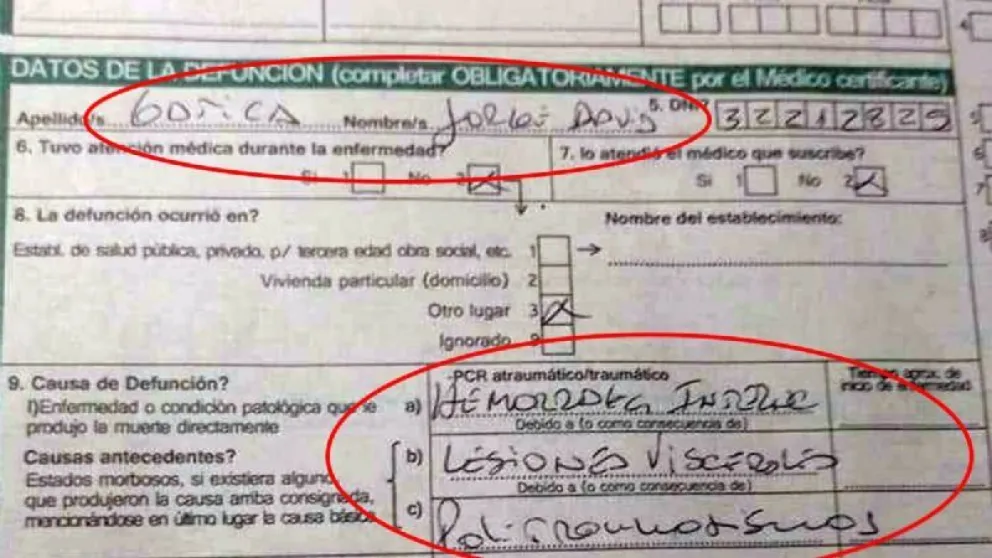 DATOS DE LA DEFUNCION (completar OBLIGATORIAMENTE por el Médico certificante)
Apellido/s GODICA Nombre/s Jorge David 5. DNI? 32212829
6. Tuvo atención médica durante la enfermedad? 7. lo atendió el médico que suscribe?
Si 1 No 2 Si 1 No 2
8. La defunción ocurrió en? Nombre del establecimiento:
Establ. de salud pública, privado, p/ tercera edad obra social, etc. 1
Vivienda particular (domicilio) 2
Otro lugar 3
Ignorado 9
9. Causa de Defunción? PCR atraumático/traumático Tiempo aprox. de
inicio de enfermedad
I)Enfermedad o condición patológica que le a) HEMORRAGIA INTERNA
produjo la muerte directamente Debido a (o como consecuencia de)
Causas antecedentes? b) LESIONES VISCERALES
Estados morbosos, si existiera alguno Debido a (o como consecuencia de)
que produjeron la causa arriba consignada, c) Politraumatismos
mencionándose en último lugar la causa básica